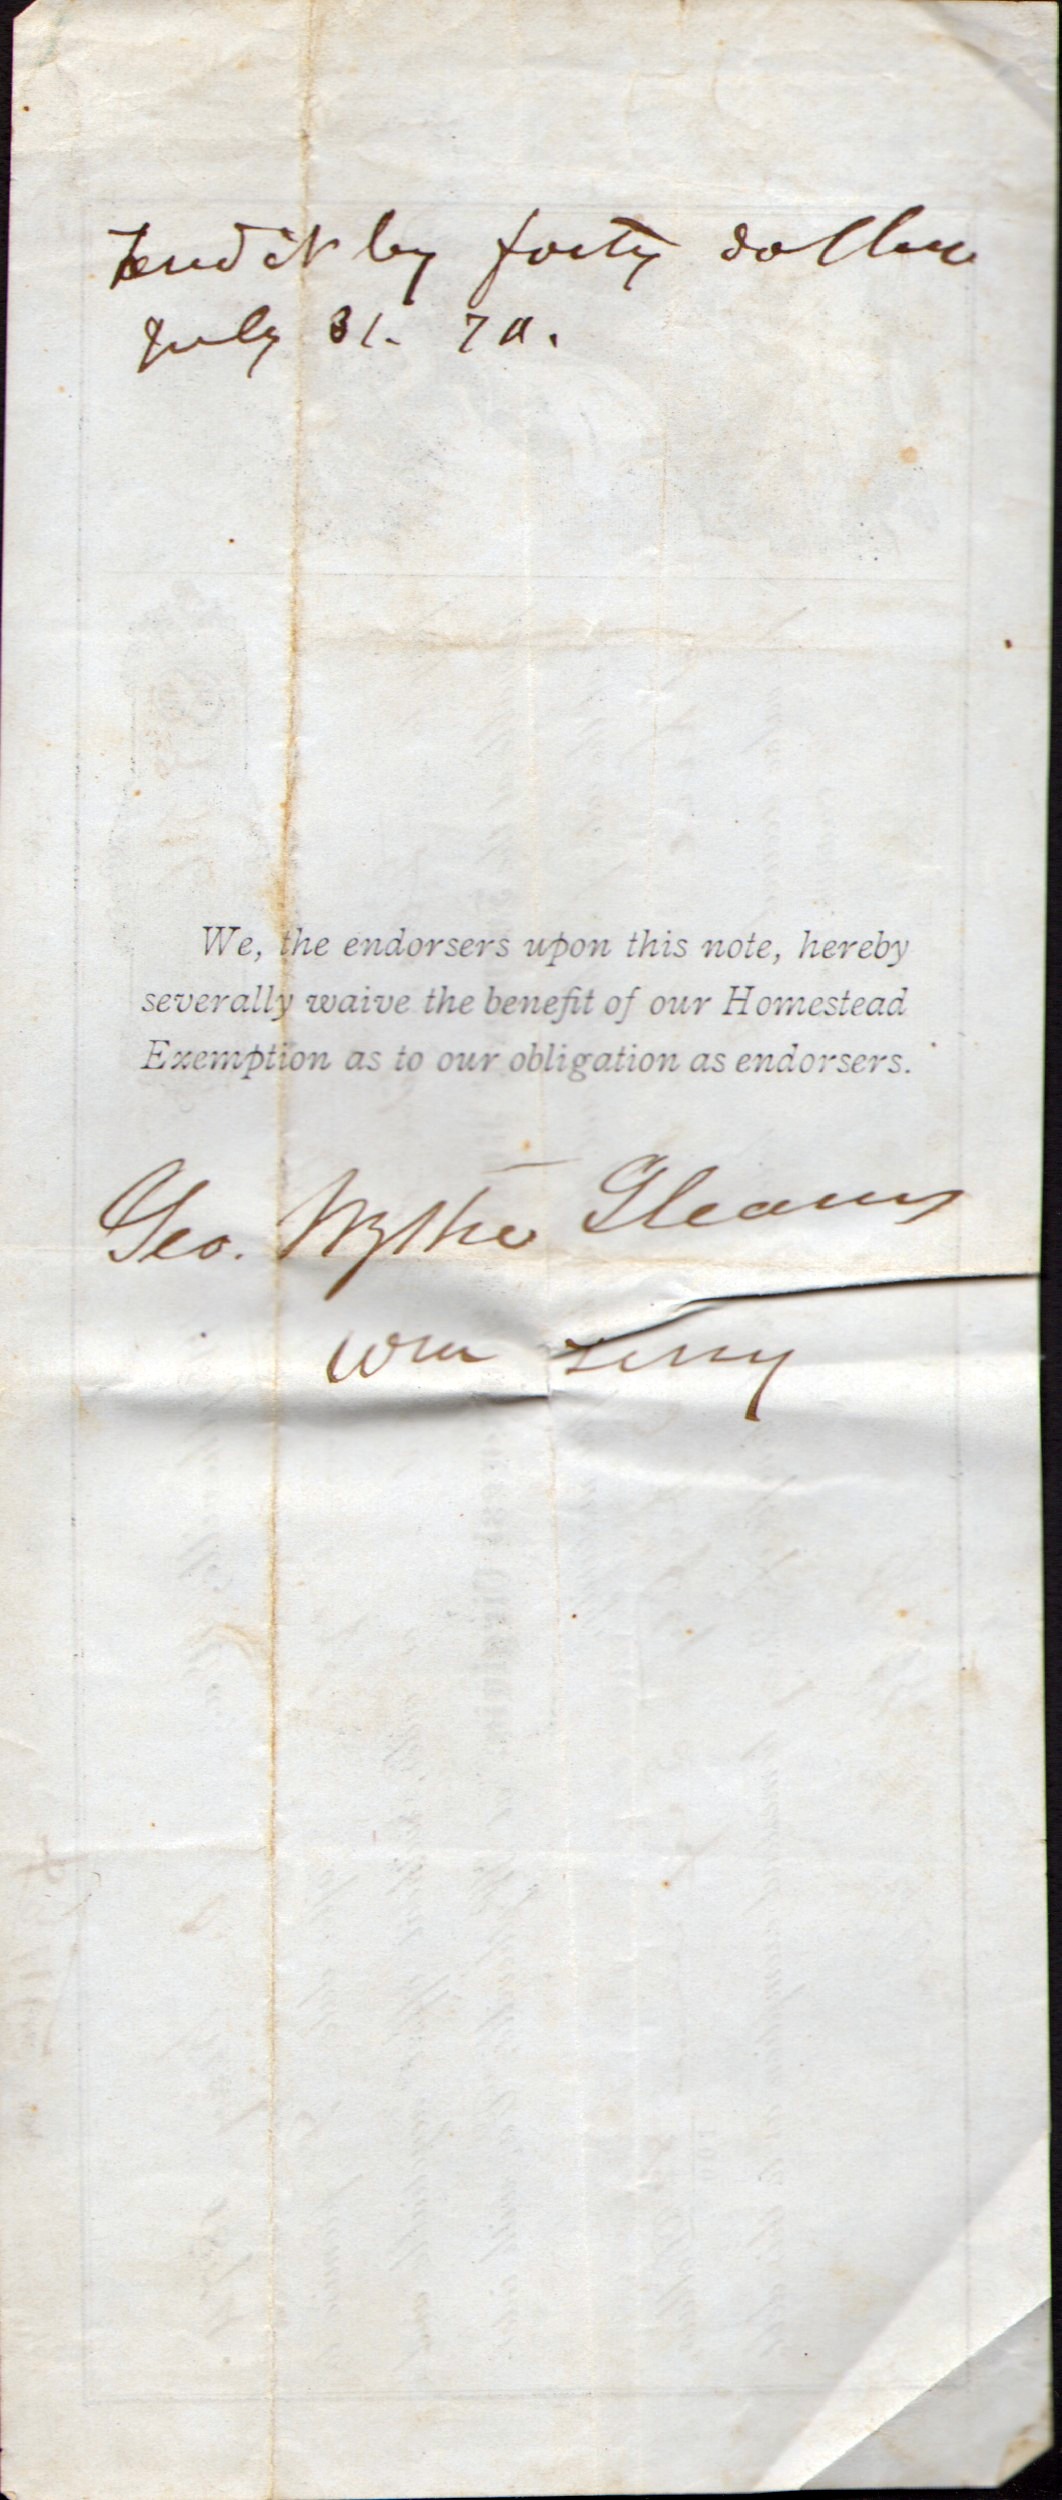 Credit by forty dollars
July 31. 70.
We, the endorsers upon this note, hereby
severally waive the benefit of our Homestead
Exemption as to our obligation as endorsers.
Geo. Wythe
Wm Terry